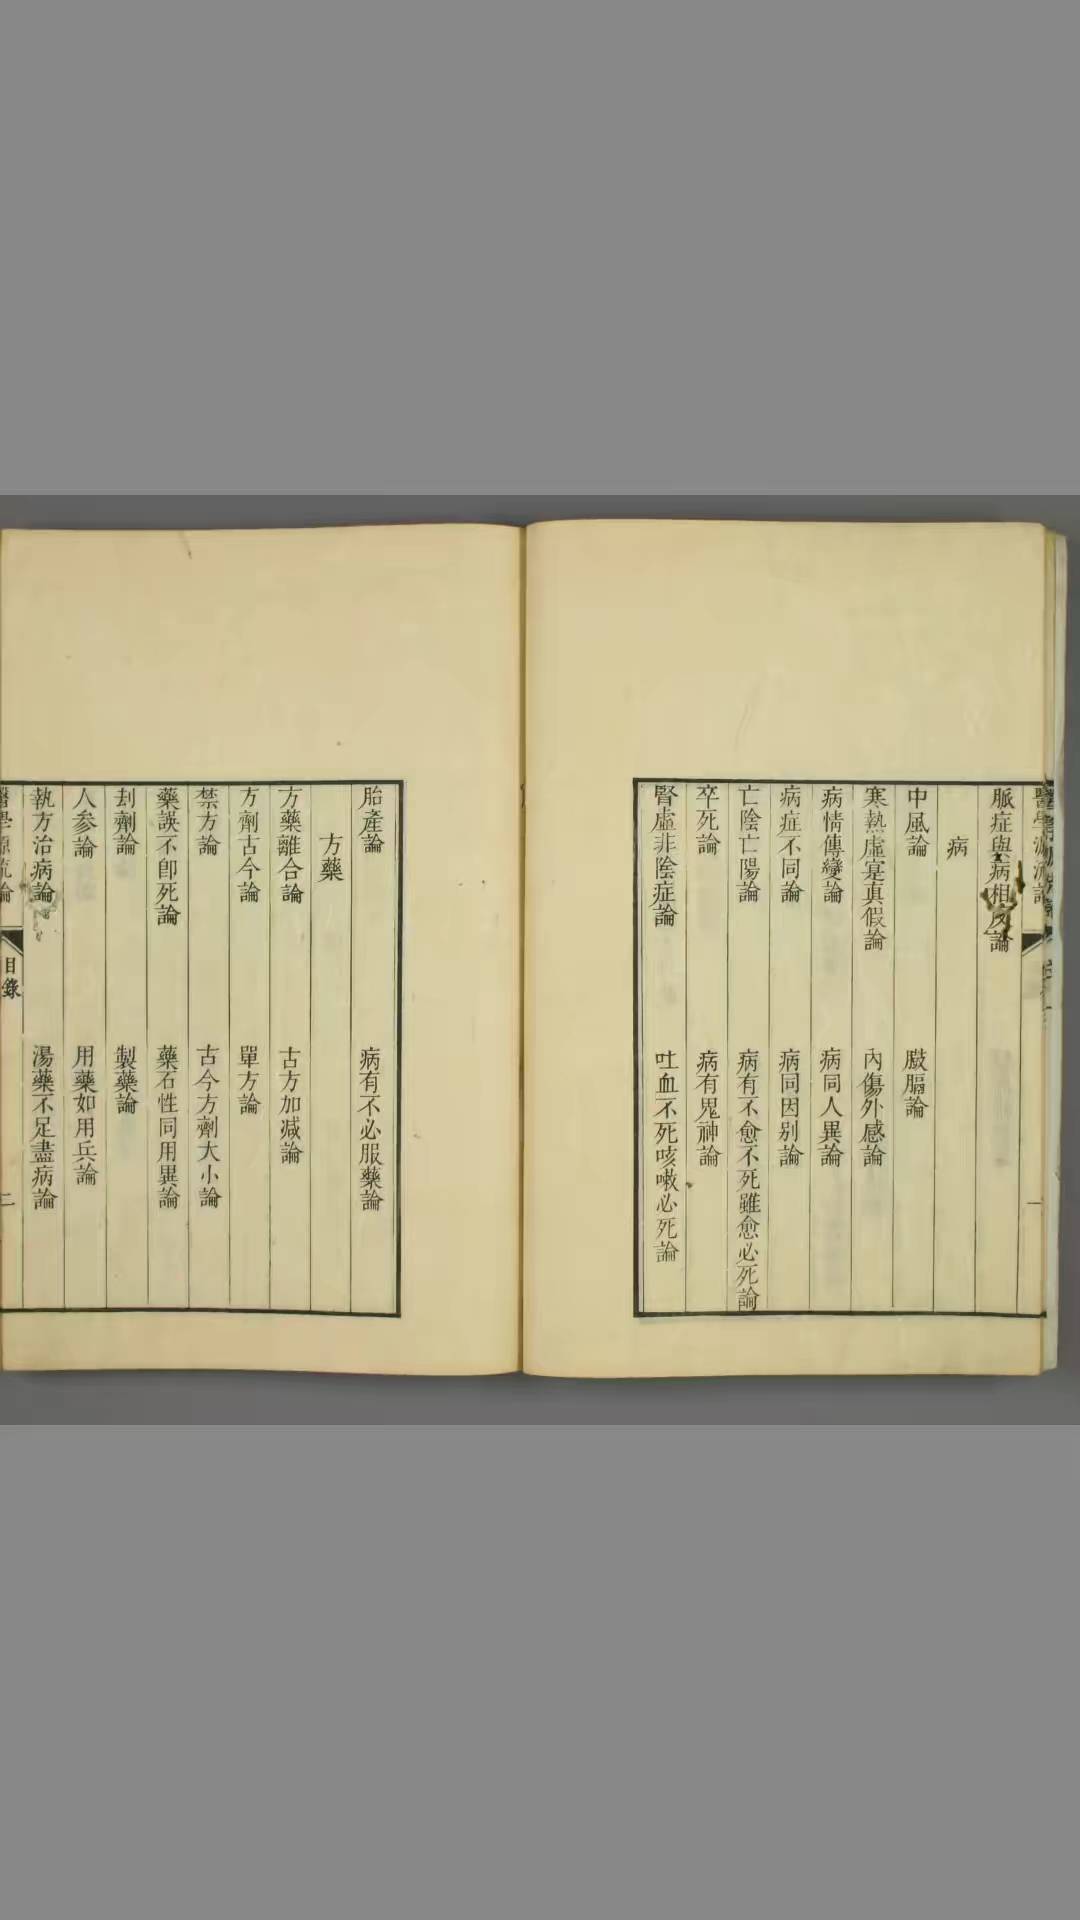 脈症與病相反論
病
中風論
臌膈論
寒熱虛寔真假論
內傷外感論
病情傳變論
病同人異論
病症不同論
病同因别論
亡陰亡陽論
病有不愈不死雖愈必死論
卒死論
病有鬼神論
腎虛非陰症論
吐血不死咳嗽必死論
一
胎產論
病有不必服藥論
方藥
方藥離合論
古方加减論
方劑古今論
單方論
禁方論
古今方劑大小論
藥誤不卽死論
藥石性同用異論
刦劑論
製藥論
人参論
用藥如用兵論
執方治病論
湯藥不足盡病論
醫學源流論
目錄
二